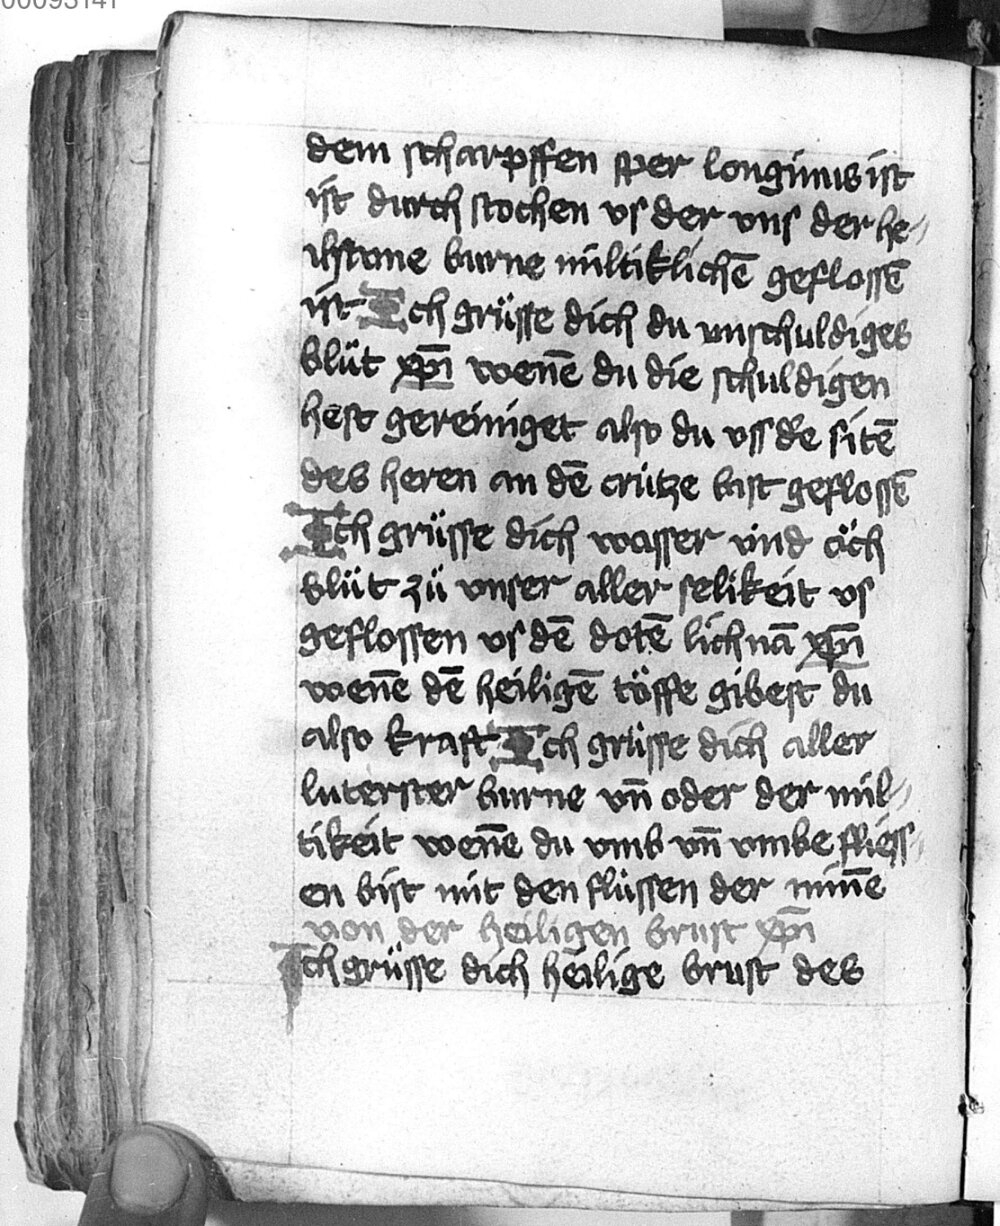 00093141
dem scharpffen sper longinus ist
ist durch stochen vs der vns der he⸗
ilsame burne miltiklichē geflossē
ist Ich grüsse dich du vnschuldiges
blüt xp̄i wen̄e du die schuldigen
hest gereiniget also du vss dē sitē
des heren an dē crütze bist geflossē
Ich grüsse dich wasser vnd öch
blüt zü vnser aller selikeit vs
geflossen vs dē dotē lichnā xp̄i
wen̄e dē heiligē töffe gibest du
also kraft Ich grüsse dich aller
luterster burne vn̄ oder der mil⸗
tikeit wen̄e du vmb vn̄ vmbe fliess⸗
en bist mit den flüssen der min̄e
von der heiligen brust xp̄i
Ich grüsse dich heilige brust des